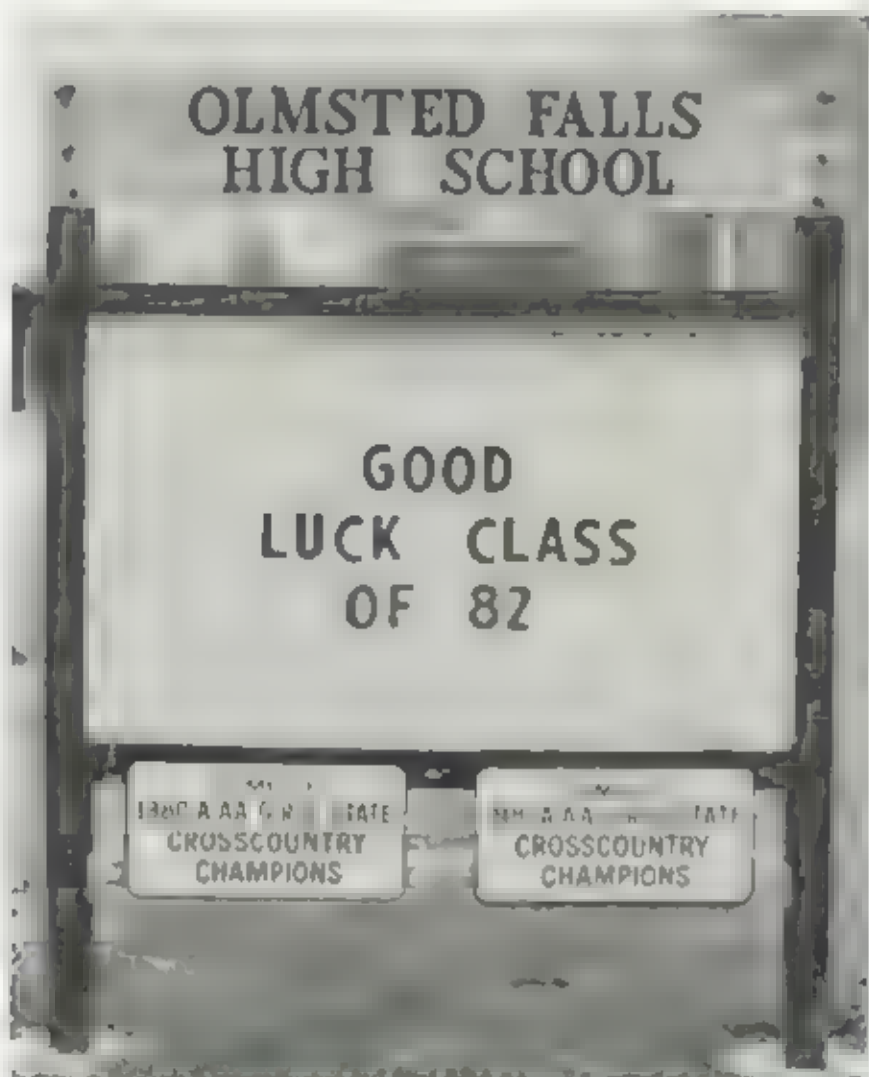 OLMSTED FALLS
HIGH SCHOOL
GOOD
LUCK CLASS
OF 82
CROSSCOUNTRY
CHAMPIONS
CROSSCOUNTRY
CHAMPIONS